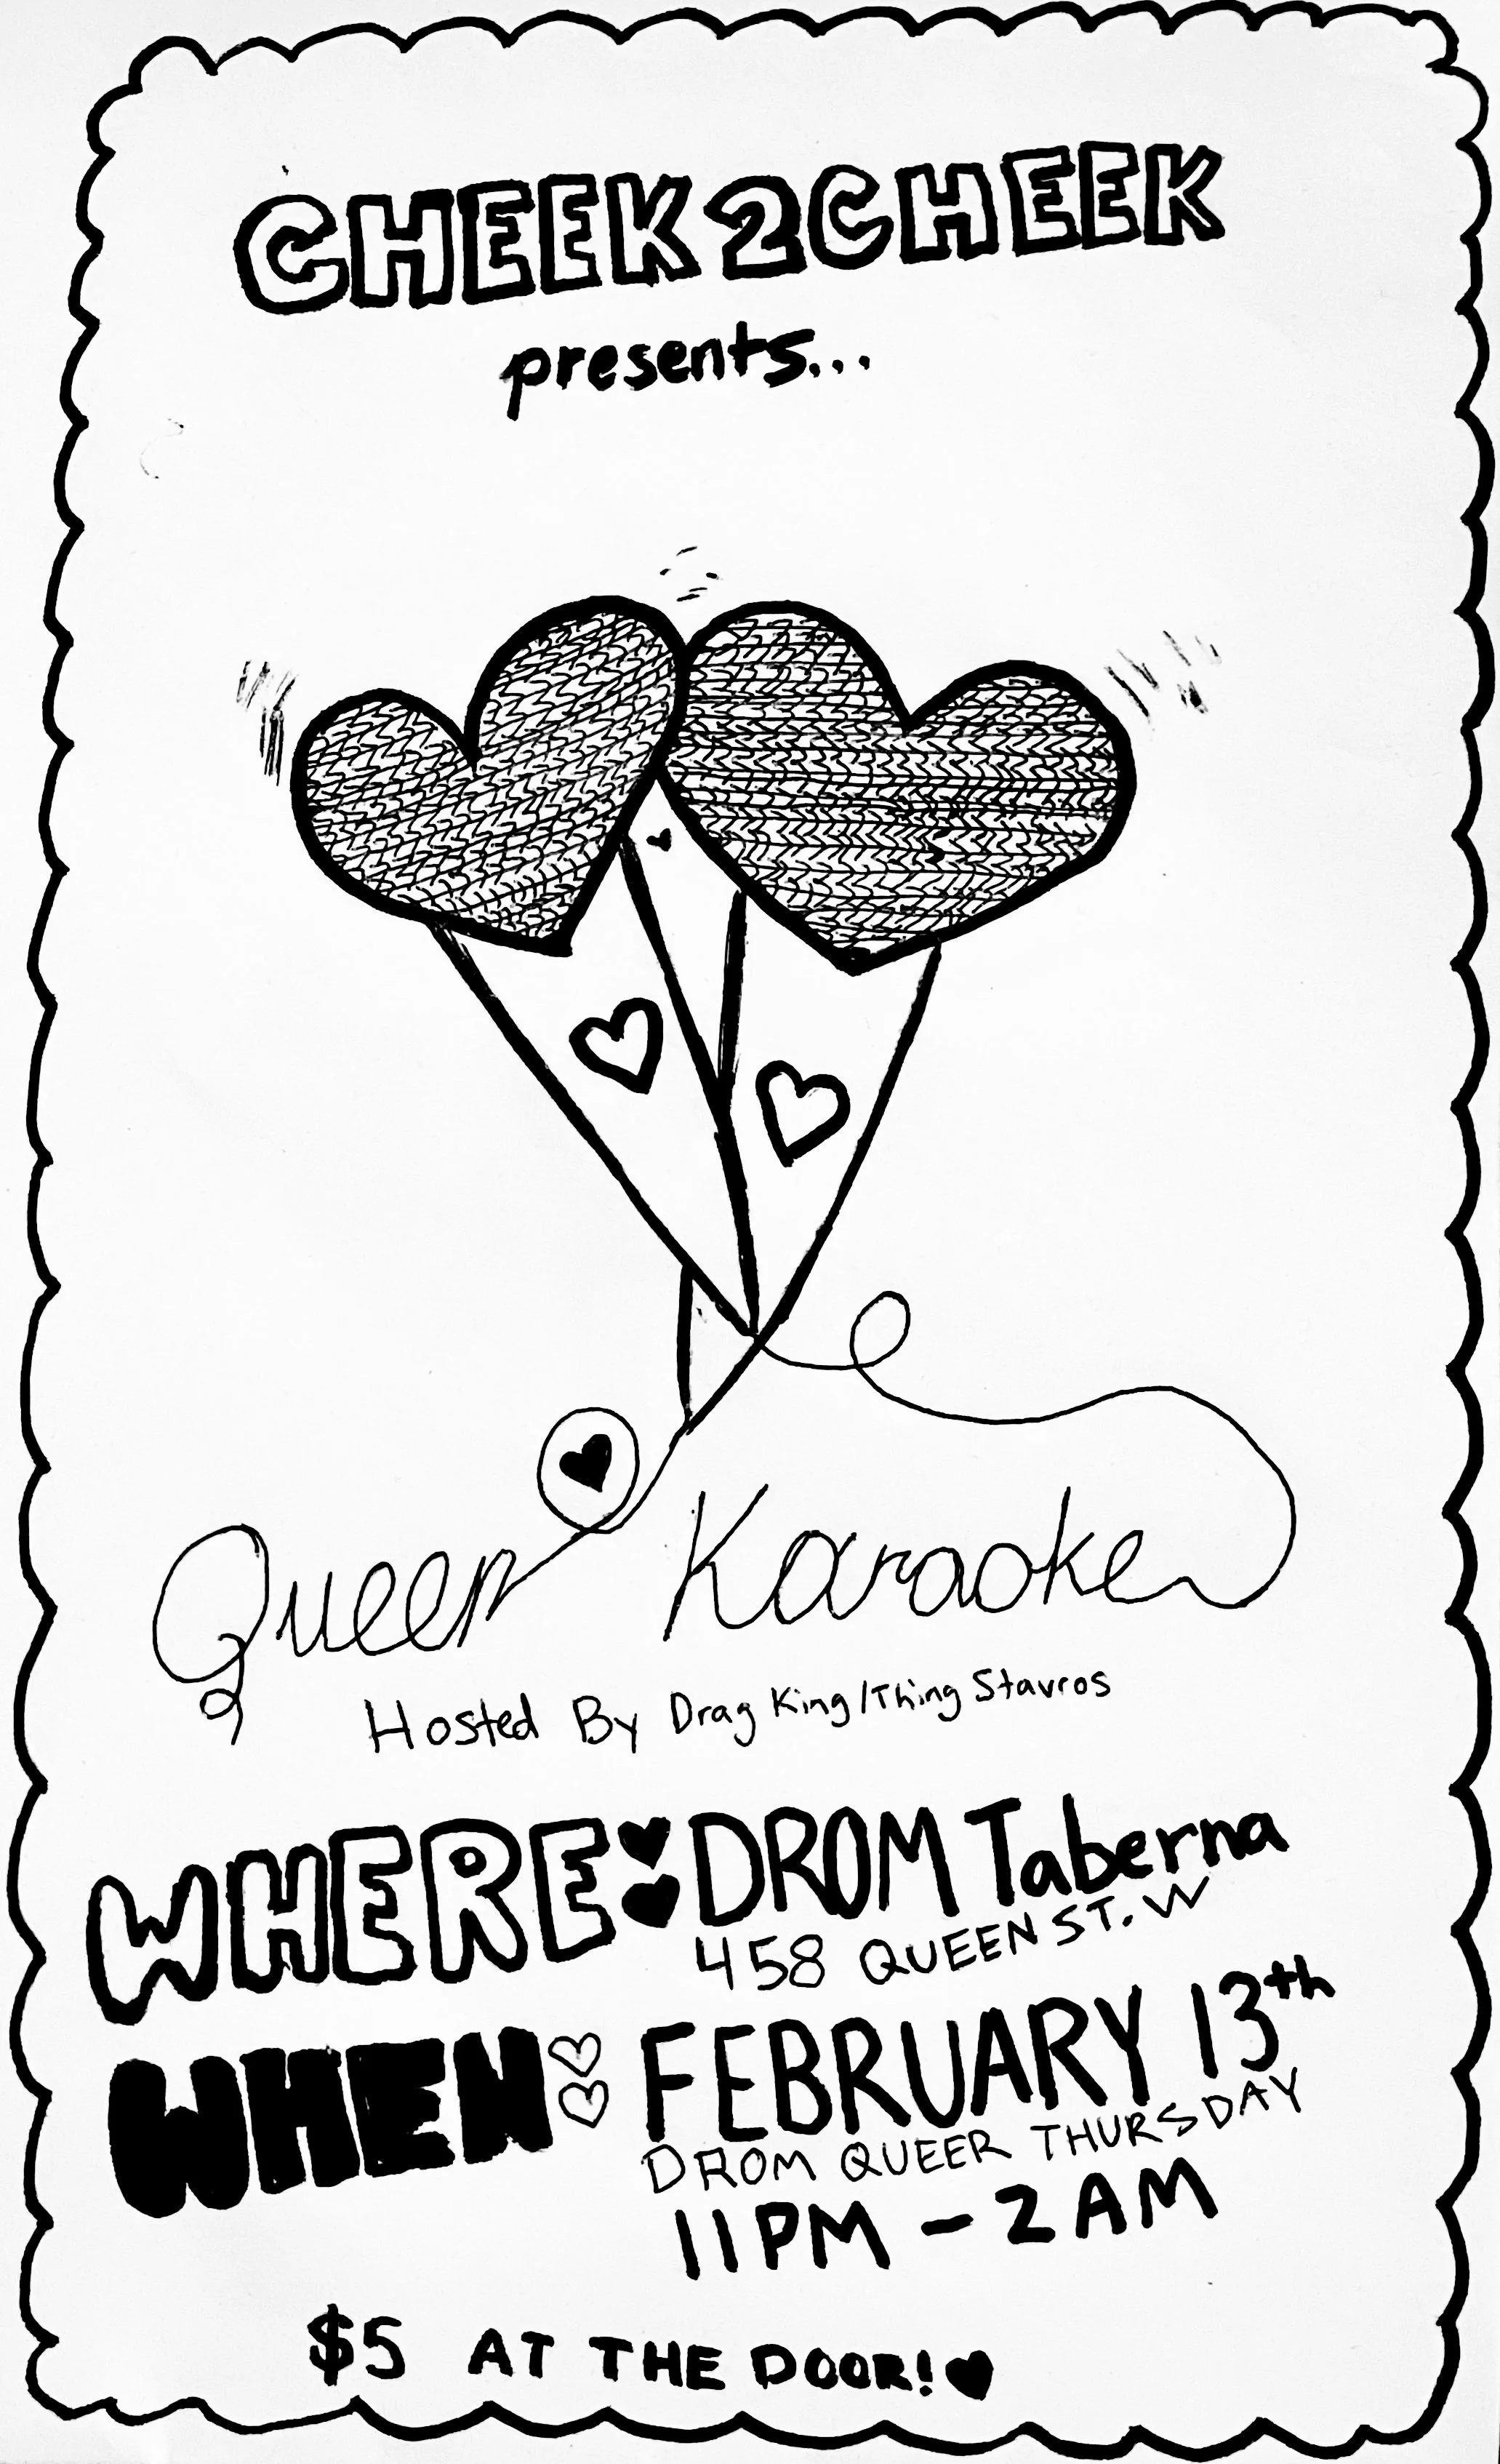 CHEEK2CHEEK
presents...
Queer Karaoke
Hosted By Drag King/Thing Stavros
WHERE: DROM Taberna
458 QUEEN ST. W
WHEN: FEBRUARY 13th
DROM QUEER THURSDAY
11PM - 2AM
$5 AT THE DOOR!